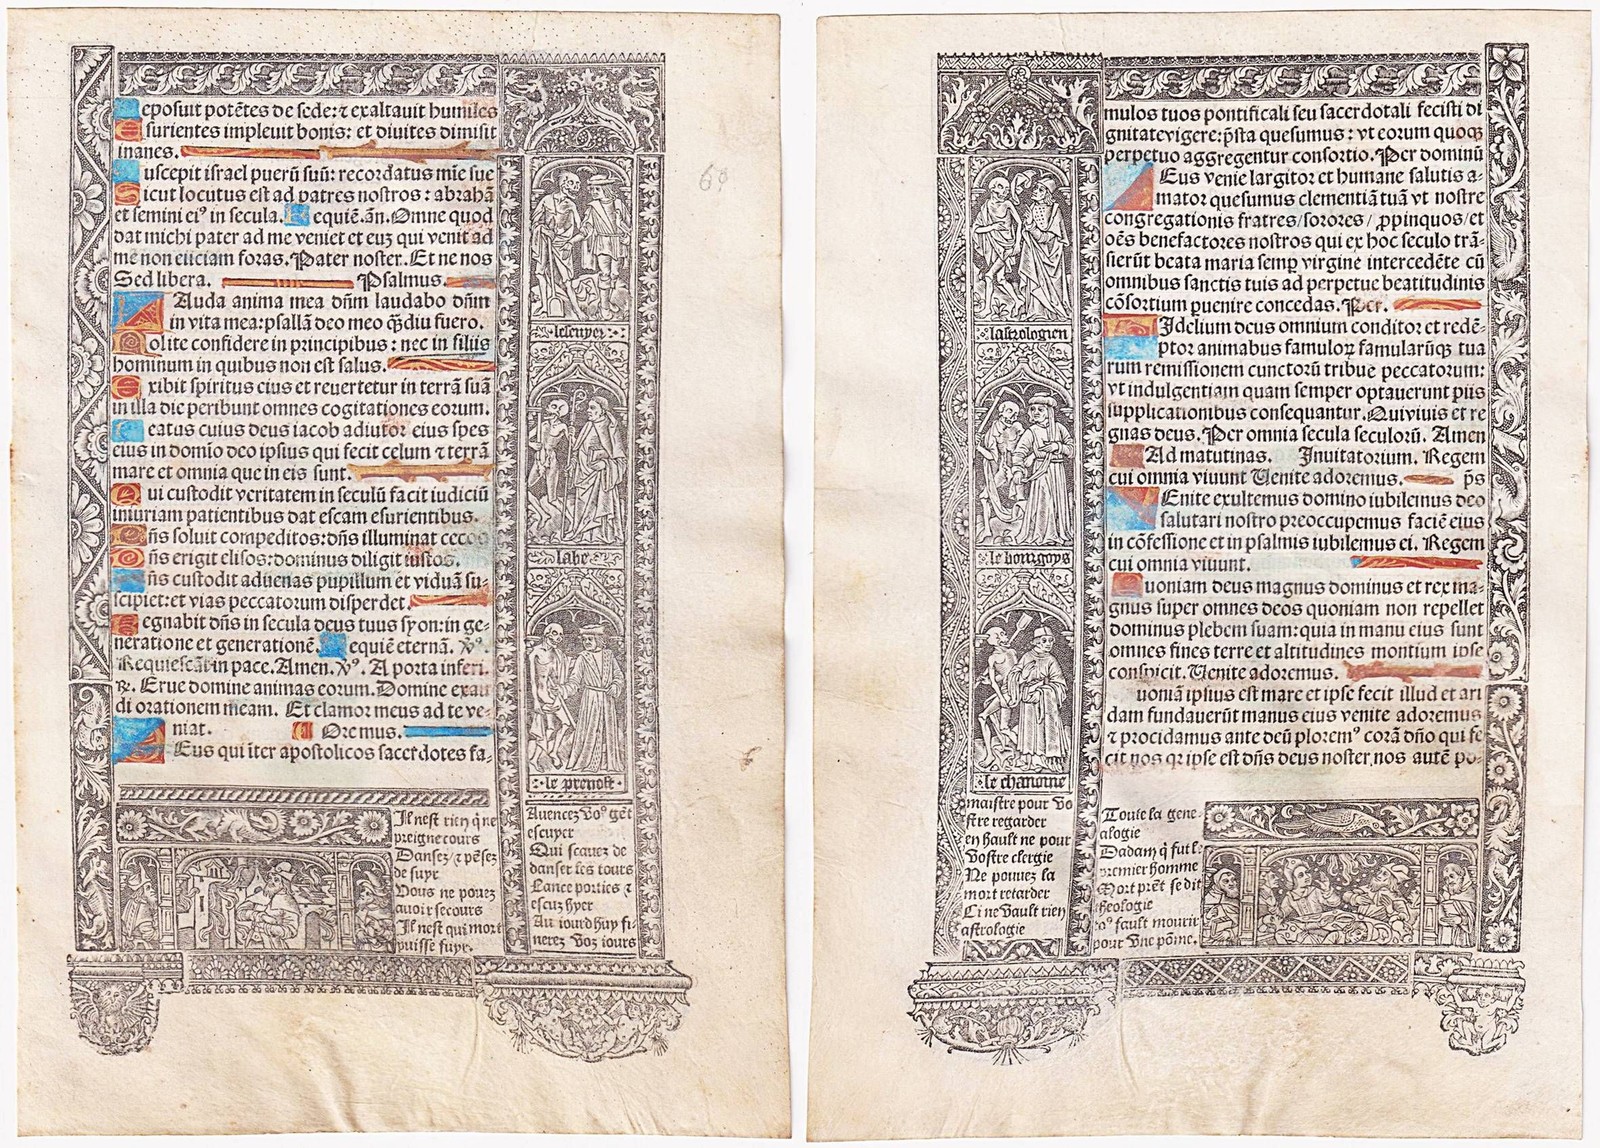 eposuit potētes de sede: ⁊ exaltauit humiles
E surientes impleuit bonis: et diuites dimisit
inanes.
uscepit israel puerū suū: recordatus mīe sue
S icut locutus est ad patres nostros: abrahā
et semini eiꝰ in secula. R equiē. añ. Omne quod
dat michi pater ad me veniet et euꝫ qui venit ad
mē non eiiciam foras. Pater noster. Et ne nos
Sed libera. Psalmus.
L Auda anima mea dñm laudabo dñm
in vita mea: psallā deo meo q̄diu fuero.
N olite confidere in principibus: nec in filiis
hominum in quibus non est salus.
E xibit spiritus eius et reuertetur in terrā suā
in illa die peribunt omnes cogitationes eorum.
B eatus cuius deus iacob adiutor eius spes
eius in domīo deo ipsius qui fecit celum ⁊ terrā
mare et omnia que in eis sunt.
Q ui custodit veritatem in seculū facit iudiciū
iniuriam patientibus dat escam esurientibus.
D ñs soluit compeditos: dñs illuminat cecos
D ñs erigit elisos: dominus diligit iustos.
ñs custodit aduenas pupillum et viduā su-
scipiet: et vias peccatorum disperdet.
R egnabit dñs in secula deus tuus syon: in ge-
neratione et generationē. equiē eternā. ℣ꝰ.
Requiescāt in pace. Amen. ℣ꝰ. A porta inferi.
℟. Erue domine animas eorum. Domine exau
di orationem meam. Et clamor meus ad te ve-
niat. Oremus.
Eus qui īter apostolicos sacerdotes fa-
lescuyer
labe
le preuost
Il nest rien q̄ ne
preigne cours
Dansez ⁊ pēsez
de suyr
Vous ne pouez
auoir secours
Il nest qui mort
puisse fuyr.
Auencez voꝰ gēt
escuyer
Qui scauez de
danser les tours
Lance porties ⁊
escuz hyer
Au iourdhuy fi-
nerez voz iours
69
mulos tuos pontificali seu sacerdotali fecisti di
gnitate vigere: p̄sta quesumus: vt eorum quoqꝫ
perpetuo aggregentur consortio. Per dominū
D Eus venie largitor et humane salutis a-
mator quesumus clementiā tuā vt nostre
congregationis fratres/sorores/ ꝓpinquos/et
oēs benefactores nostros qui ex hoc seculo trā-
sierūt beata maria semp̱ virgine intercedēte cū
omnibus sanctis tuis ad perpetue beatitudinis
cōsortium ꝑuenire concedas. Per.
F Idelium deus omnium conditor et redē-
ptor animabus famuloꝝ famularūqꝫ tua
rum remissionem cunctorū tribue peccatorum:
vt indulgentiam quam semper optauerunt piis
supplicationibus consequantur. Qui viuis et re
gnas deus. Per omnia secula seculorū. Amen
Ad matutinas. Inuitatorium. Regem
cui omnia viuunt Venite adoremus. p̄s
V Enite exultemus domino iubilemus deo
salutari nostro preoccupemus faciē eius
in cōfessione et in psalmis iubilemus ei. Regem
cui omnia viuunt.
Q uoniam deus magnus dominus et rex ma-
gnus super omnes deos quoniam non repellet
dominus plebem suam: quia in manu eius sunt
omnes fines terre et altitudines montium ipse
conspicit. Venite adoremus.
uoniā ipsius est mare et ipse fecit illud et ari
dam fundauerūt manus eius venite adoremus
⁊ procidamus ante deū ploremꝰ corā dño qui fe
cit nos qꝛ ipse est dñs deus noster, nos autē po-
lastrologien
le bourgoys
le chanoine
maistre pour vo
stre regarder
en hault ne pour
vostre clergie
Ne pouuez la
mort retarder
Ci ne vault rien
astrologie
Toute la gene-
alogie
Dadam q̄ fut le
premier homme
Mort prēt se dit
theologie
voꝰ fault mourir
pour vne pōme.